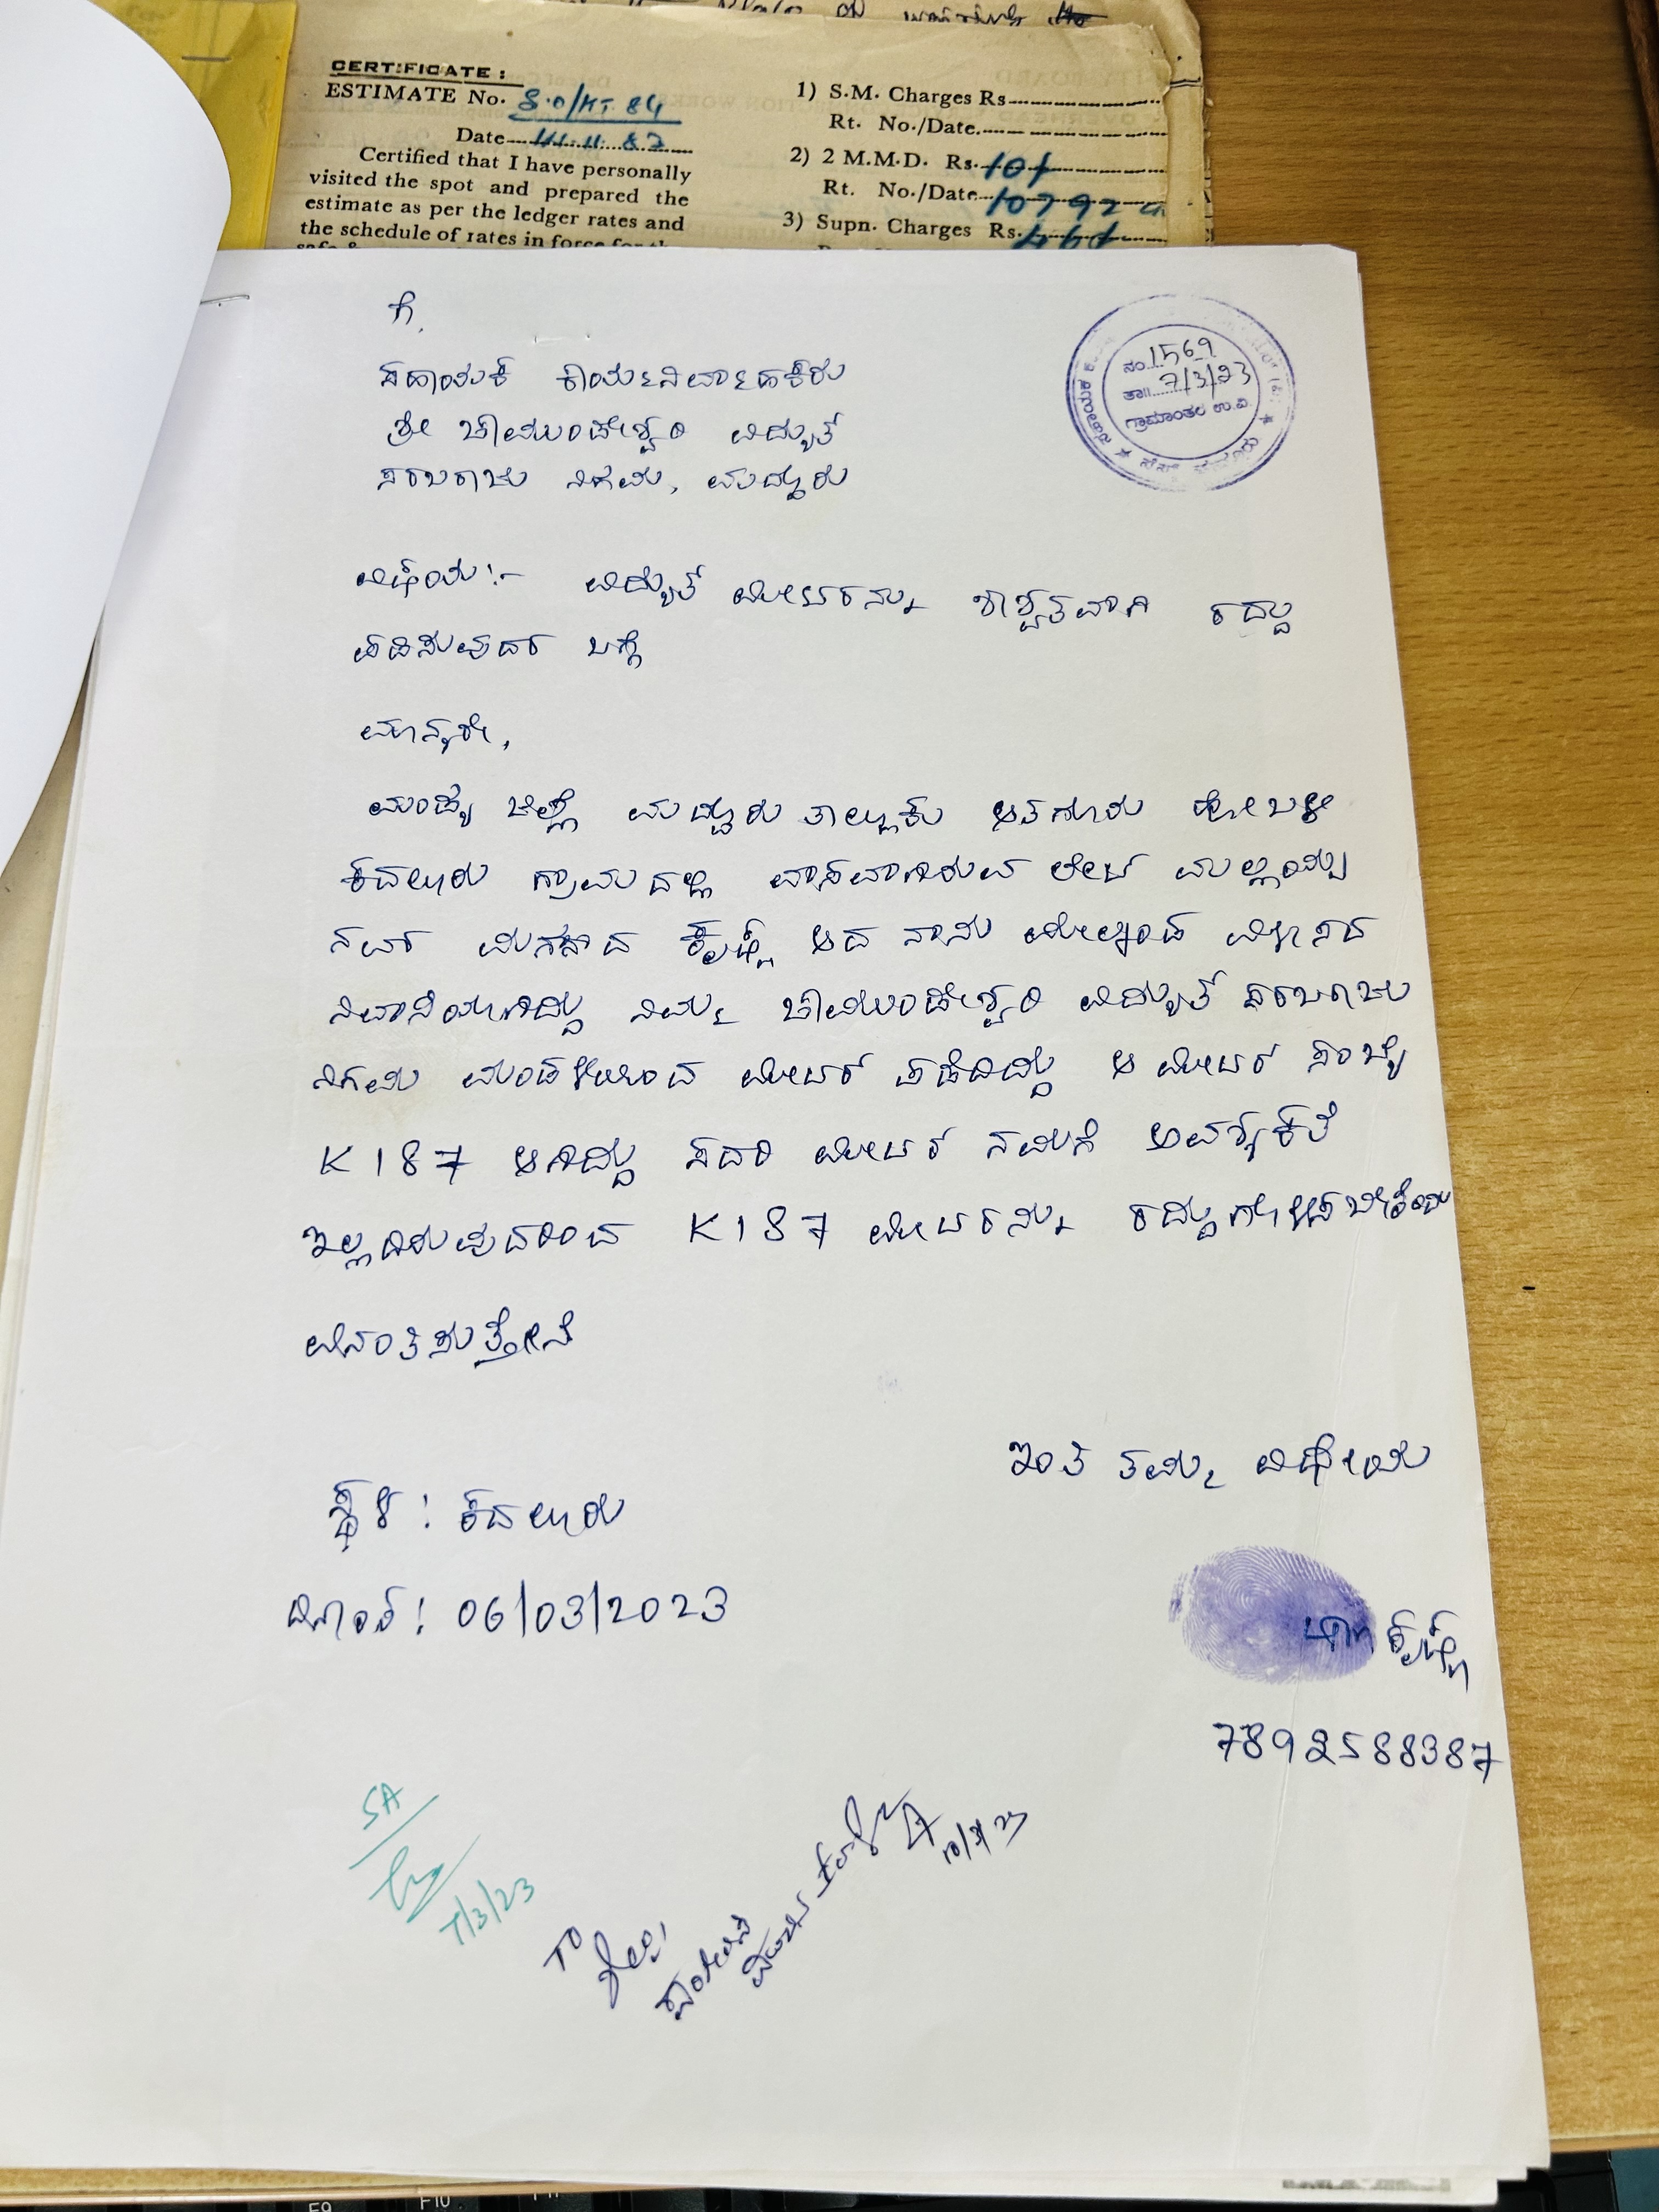 CERTIFICATE:
ESTIMATE No. S.O/MT 84
Date 11.11.87
Certified that I have personally
visited the spot and prepared the
estimate as per the ledger rates and
the schedule of rates in force for
1) S.M. Charges Rs
Rt. No./Date
2) 2 M.M.D. Rs. 10/
Rt. No./Date 10792
3) Supn. Charges Rs.
ನಂ 1569
ತಾ॥ 7/3/23
ಗ್ರಾಮಾಂತರ ಉ.ವಿ.
ಗೆ,
ಸಹಾಯಕ ಕಾರ್ಯನಿರ್ವಾಹಕರು
ಶ್ರೀ ಚಾಮುಂಡೇಶ್ವರಿ ವಿದ್ಯುತ್
ಸರಬರಾಜು ನಿಗಮ, ಮದ್ದೂರು
ವಿಷಯ:- ವಿದ್ಯುತ್ ಮೀಟರನ್ನು ಶಾಶ್ವತವಾಗಿ ರದ್ದು
ಪಡಿಸುವುದರ ಬಗ್ಗೆ
ಮಾನ್ಯರೇ,
ಮಂಡ್ಯ ಜಿಲ್ಲೆ ಮದ್ದೂರು ತಾಲ್ಲೂಕು ಆತಗೂರು ಹೋಬಳಿ
ಕದಲೂರು ಗ್ರಾಮದಲ್ಲಿ ವಾಸವಾಗಿರುವ ಲೇಟ್ ಮಲ್ಲಯ್ಯ
ನವರ ಮಗನಾದ ಕೃಷ್ಣ ಆದ ನಾನು ಮೇಲ್ಕಂಡ ವಿಳಾಸದ
ನಿವಾಸಿಯಾಗಿದ್ದು ನಿಮ್ಮ ಚಾಮುಂಡೇಶ್ವರಿ ವಿದ್ಯುತ್ ಸರಬರಾಜು
ನಿಗಮ ಮಂಡಳಿಯಿಂದ ಮೀಟರ್ ಪಡೆದಿದ್ದು ಆ ಮೀಟರ್ ಸಂಖ್ಯೆ
K187 ಆಗಿದ್ದು ಸದರಿ ಮೀಟರ್ ನಮಗೆ ಅವಶ್ಯಕತೆ
ಇಲ್ಲದಿರುವುದರಿಂದ K187 ಮೀಟರನ್ನು ರದ್ದುಗೊಳಿಸಬೇಕೆಂದು
ವಿನಂತಿಸುತ್ತೇನೆ
ಇಂತಿ ತಮ್ಮ ವಿಧೇಯ
ಸ್ಥಳ: ಕದಲೂರು
ದಿನಾಂಕ: 06/03/2023
ಕೃಷ್ಣ
7892588387
SA
7/3/23
TO
10/3/23
F9
F10